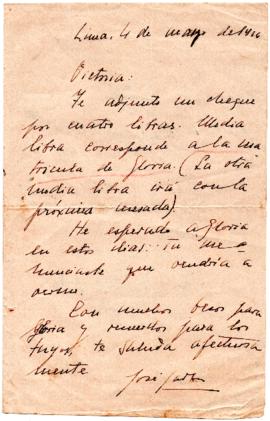 Lima, 4 de mayo de 1926
Victoria:
Te adjunto un cheque
por cuatro libras. Media
libra corresponde a la ma
trícula de Gloria. (La otra
media libra irá con la
próxima mesada).
He esperado a Gloria
en estos días. Tú me a-
nunciaste que vendría a
verme.
Con muchos besos para
Gloria y recuerdos para los
tuyos, te saluda afectuosa
mente
José Carlos